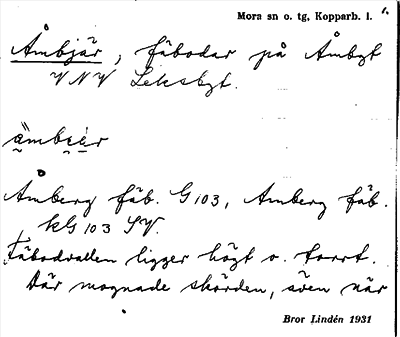 Mora sn o. tg, Kopparb. l. 1.
Åmbjär, fäbodar på Åmbgt
VNV Leksbgt.
ämbεär
Åmberg fäb. G 103, Amberg fäb.
kG 103 SV.
Fäbodvallen ligger högt o. torrt.
Där mognade skörden, även när
Bror Lindén 1931